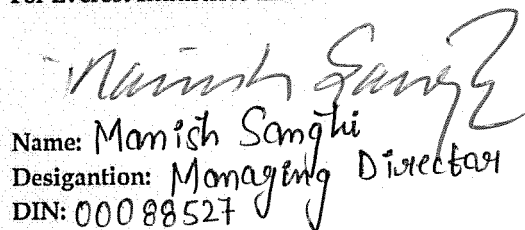 Manish Sanghi
Name: Manish Sanghi
Desigantion: Managing Director
DIN: 00088527